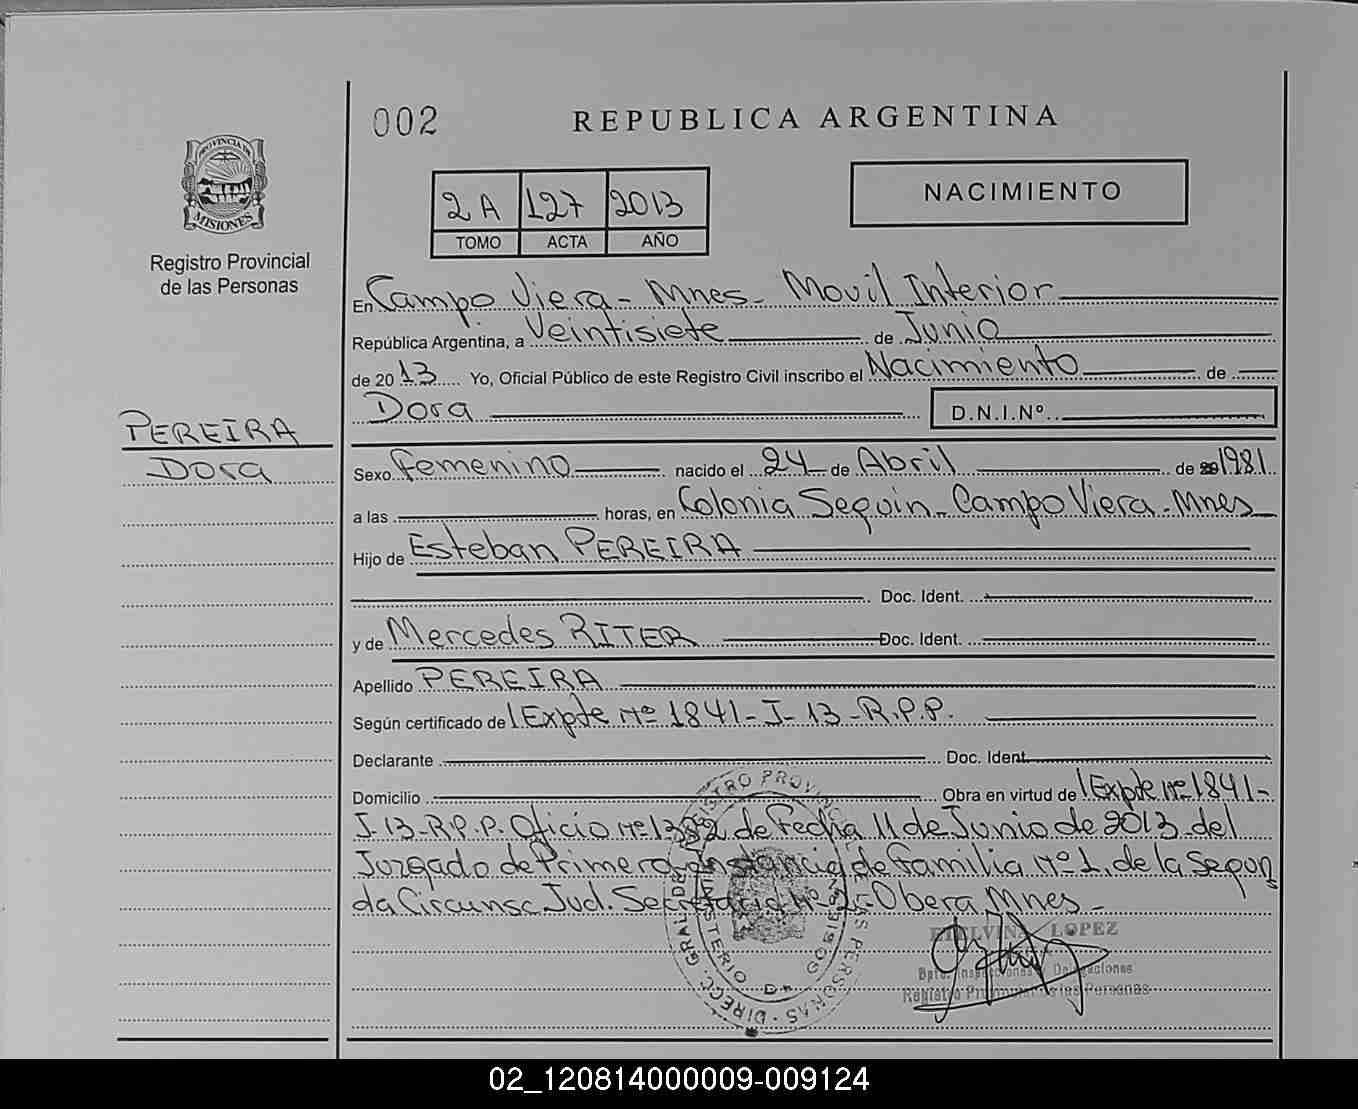 002
REPUBLICA ARGENTINA
PROVINCIA DE
MISIONES
Registro Provincial
de las Personas
2A 127 2013
TOMO ACTA AÑO
NACIMIENTO
En Campo Viera - Mnes - Movil Interior
República Argentina, a Veintisiete de Junio
de 2013 Yo, Oficial Público de este Registro Civil inscribo el Nacimiento de
Dora D.N.I.Nº
PEREIRA
Dora
Sexo Femenino nacido el 24 de Abril de 1981
a las horas, en Colonia Seguin - Campo Viera - Mnes
Hijo de Esteban PEREIRA
Doc. Ident.
y de Mercedes RITER Doc. Ident.
Apellido PEREIRA
Según certificado de Expte Nº 1841 - J - 13 - R.P.P.
Declarante Doc. Ident.
Domicilio Obra en virtud de Expte Nº 1841-
J-13-R.P.P. Oficio Nº 1382 de Fecha 11 de Junio de 2013 del
Juzgado de Primera instancia de Familia Nº 1, de la Segun
da Circunsc. Jud. Secretaria Nº Obera Mnes -
LOPEZ
Registro Provincial de las Personas
DIRECC. GRAL DEL REGISTRO PROVINCIAL DE LAS PERSONAS
MINISTERIO DE GOBIERNO
02_120814000009-009124